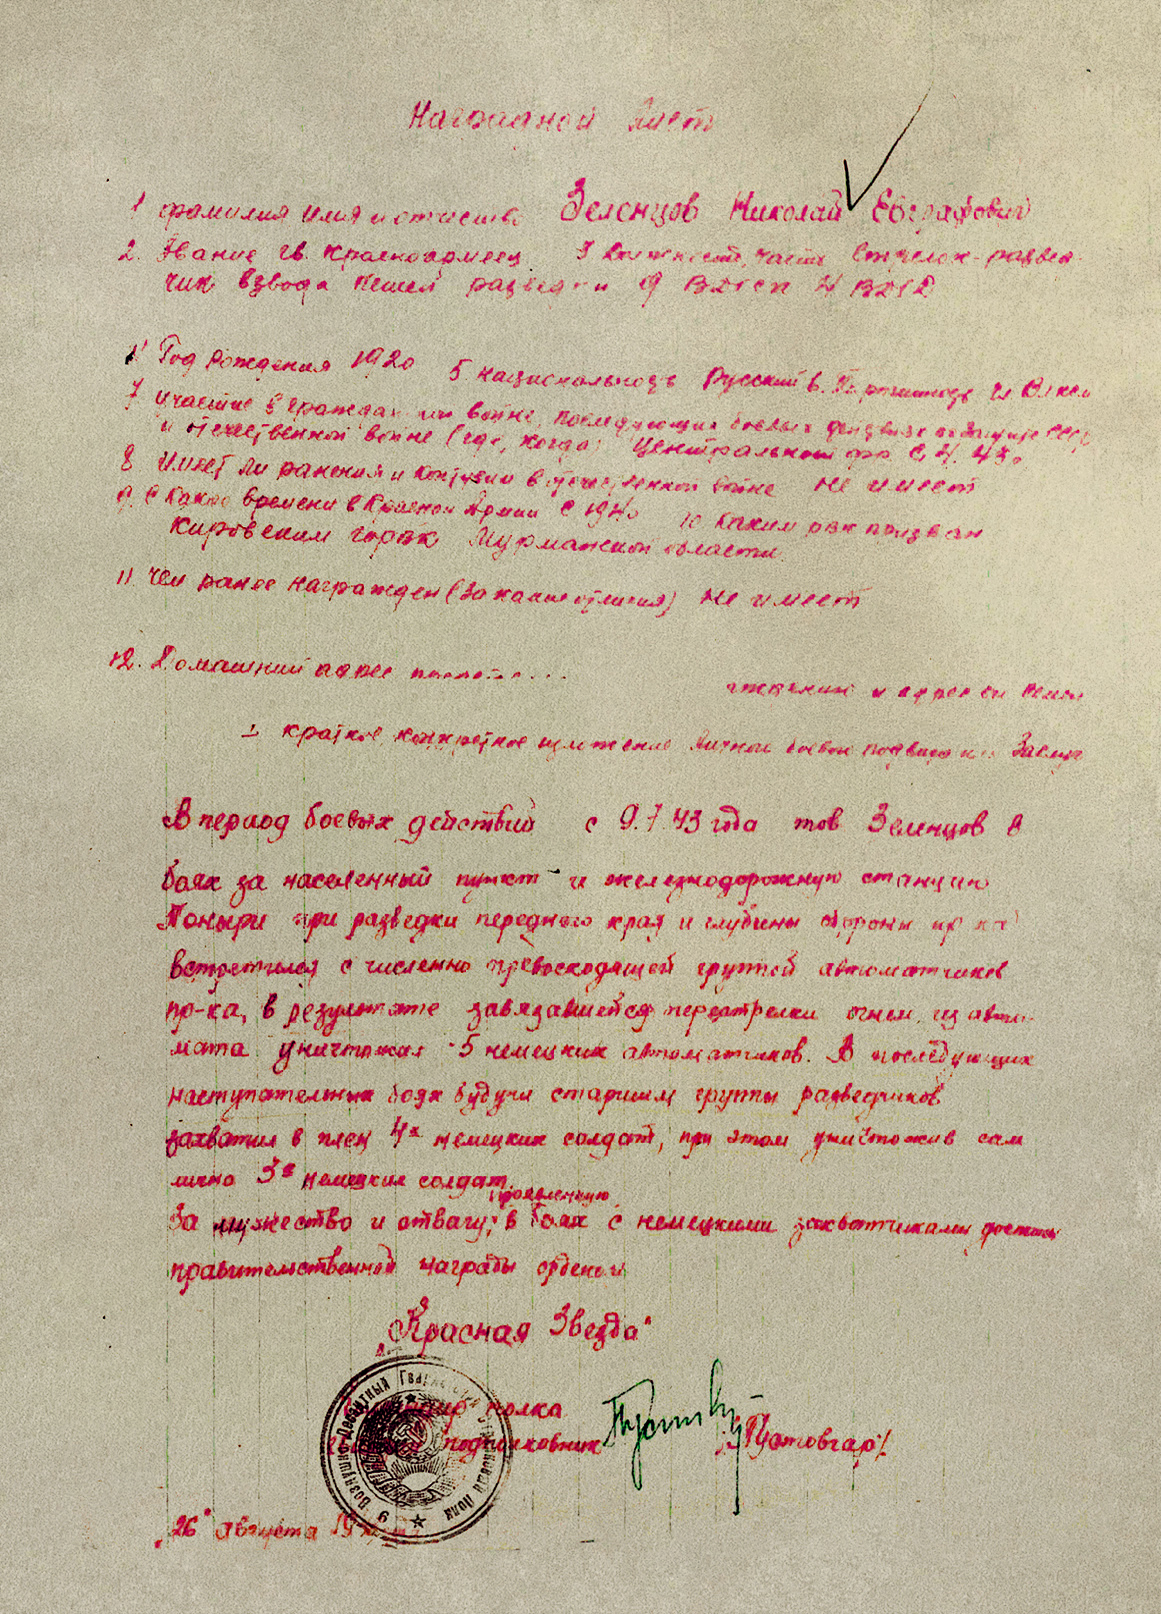 Наградной лист
1 фамилия имя и отчество Зеленцов Николай Евграфович
2. Звание гв. Красноармеец 3 должность, часть стрелок-развед-
чик взвода пешей разведки 9 ВДГСП 4 ВДГД
4 Год рождения 1920 5. национальность Русский 6. Партийность
7 участие в граждан войне, последующих боевых СССР
и отечественной войне (где, когда) Центральный фр с 7. 43.
8 Имеет ли ранения и контузии в отечественной войне не имеет
9. С какого времени в Красной Армии с 1940 10 Каким рвк призван
Кировским горвк Мурманской области
11. Чем ранее награжден (за какие отличия) не имеет
12. Домашний адрес
и адрес семьи
I краткое, конкретное изложение личного боевого подвига или заслуг
В период боевых действий с 9.7.43 года тов Зеленцов в
боях за населенный пункт и железнодорожную станцию
Поныри при разведки переднего края и глубины обороны пр-ка
встретился с численно превосходящей группой автоматчиков
пр-ка, в результате завязавшейся перестрелки огнем из авто-
мата уничтожил 5 немецких автоматчиков. В последующих
наступательных боях будучи старшим группы разведчиков
захватил в плен 4х немецких солдат, при этом уничтожив сам
лично 3х немецких солдат.
проявленную
За мужество и отвагу, в боях с немецкими захватчиками достоин
правительственной награды орденом
„Красная Звезда"
Командир полка
подполковник /Пустовгар/
9 Воздушно Десантный Гвардейский Стрелковый Полк
„26" августа 19